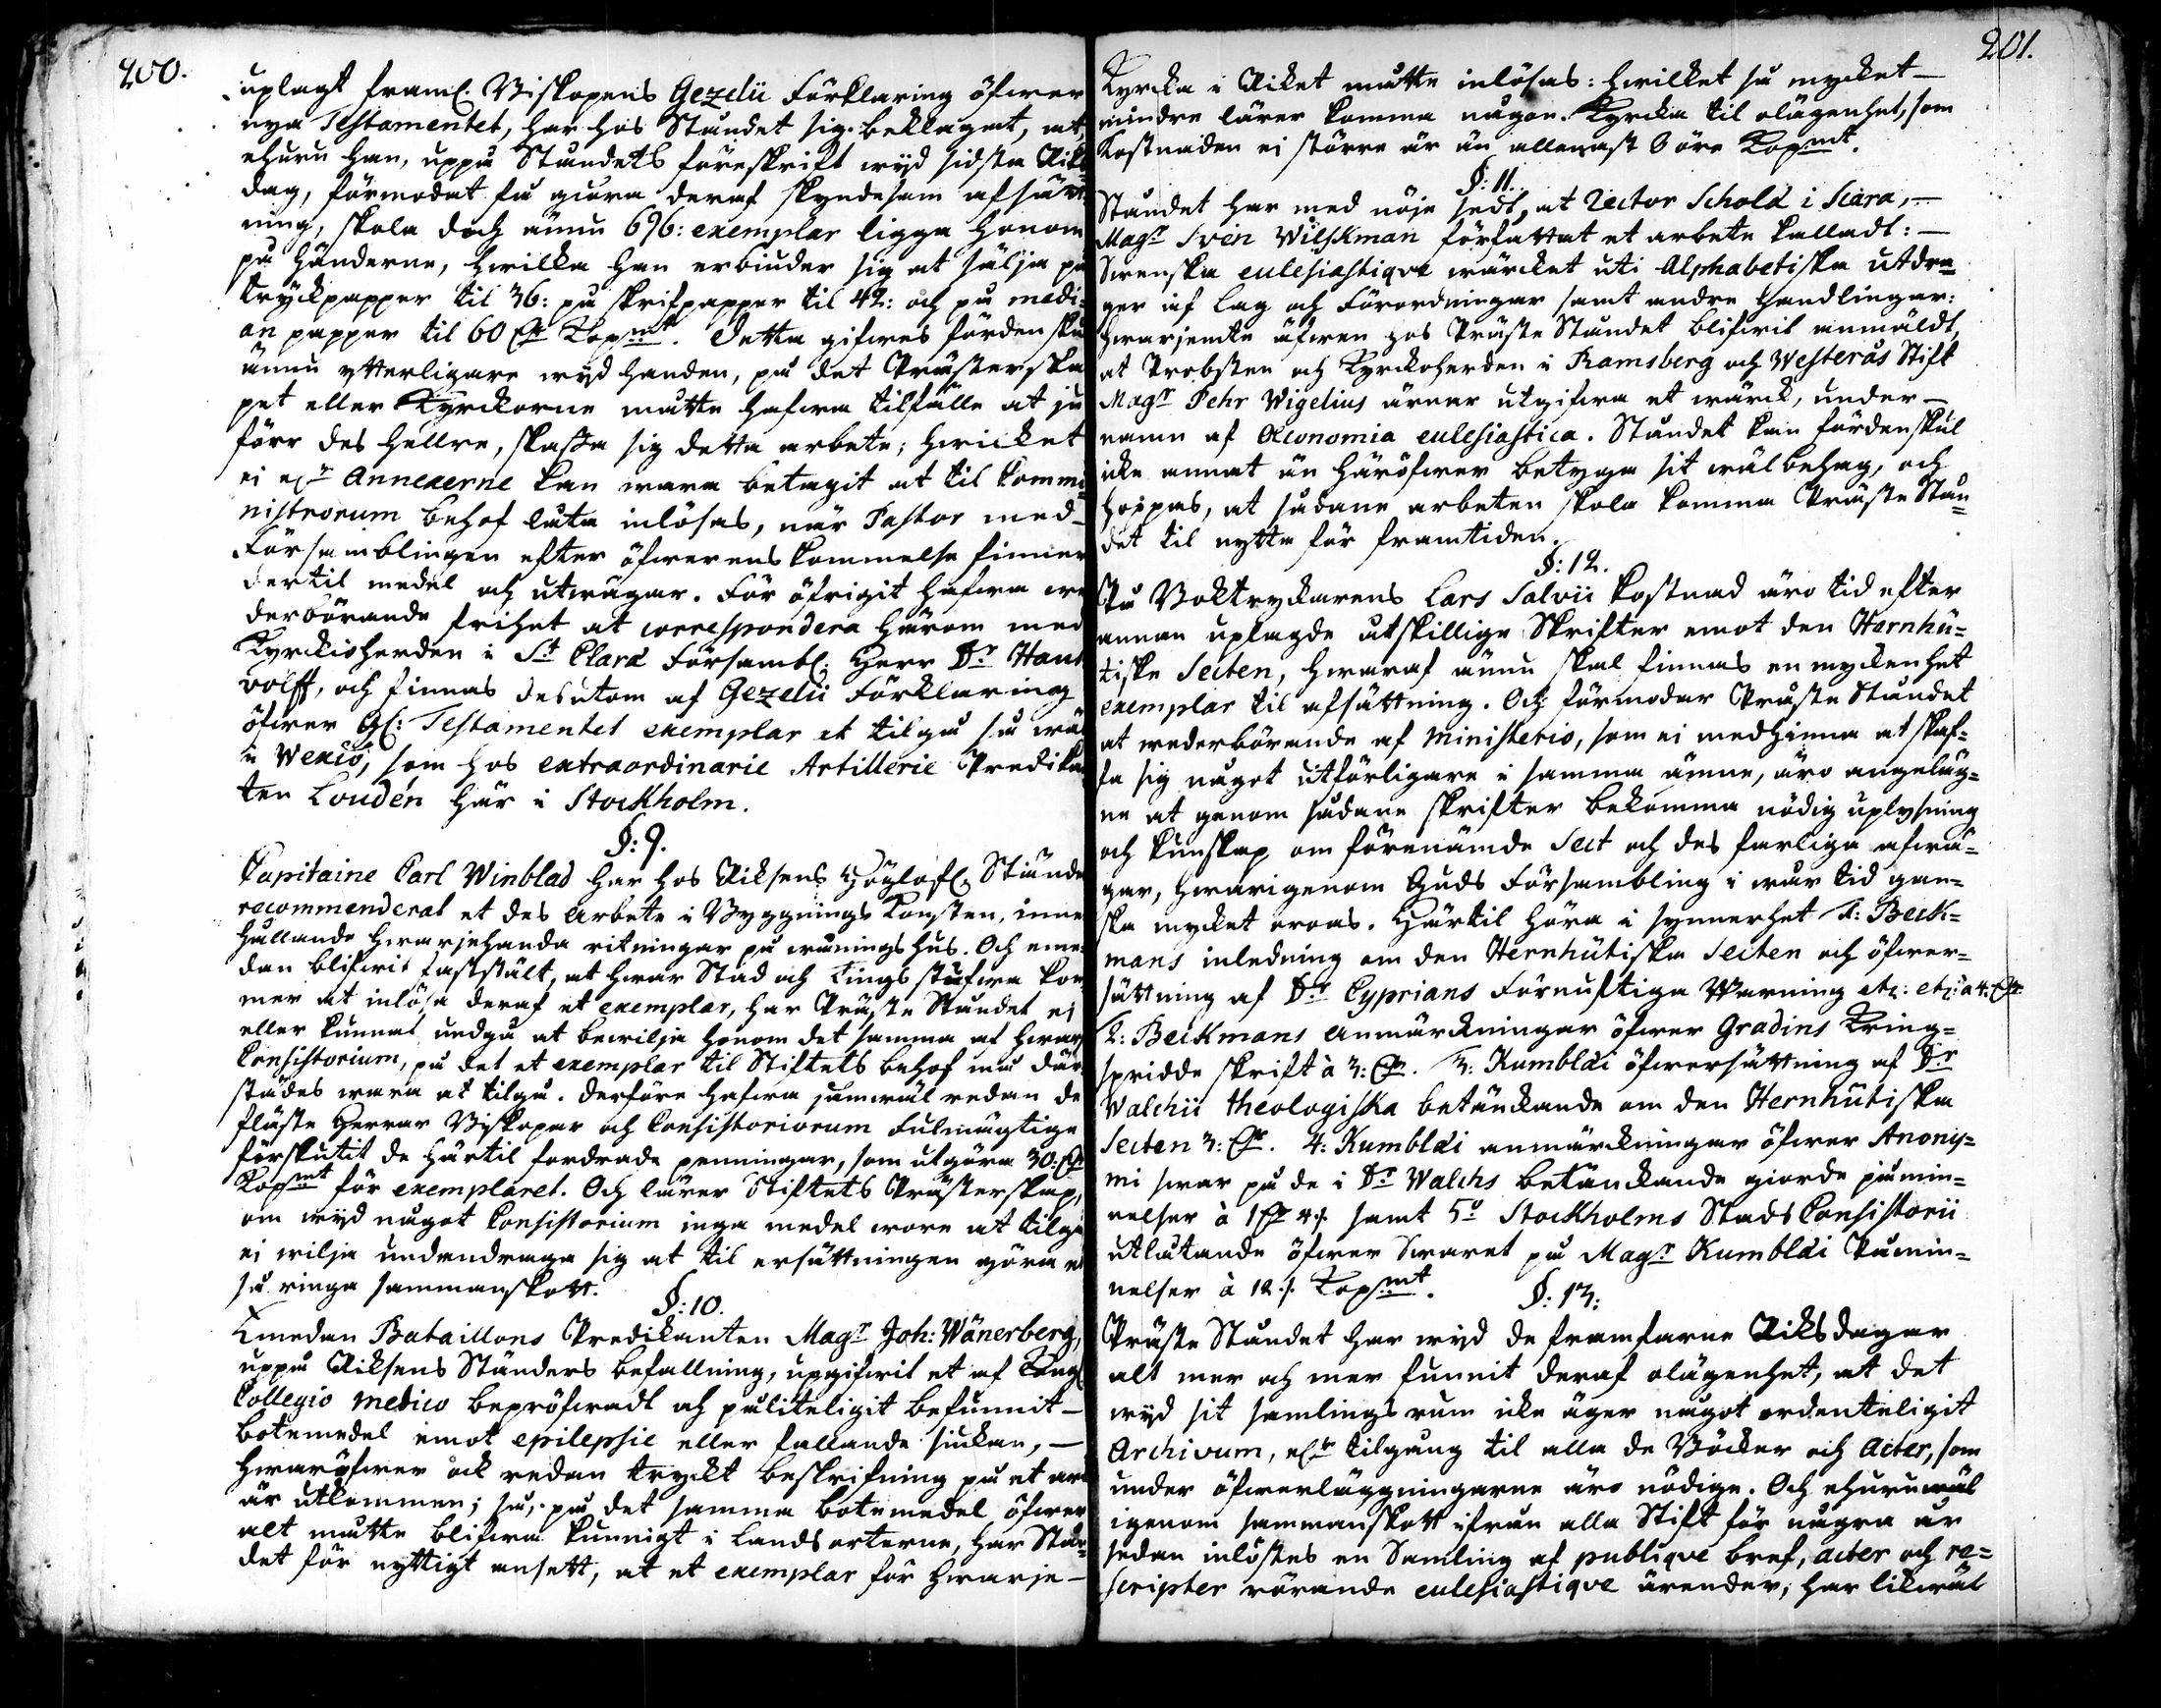 200.
uplagt framl. Biskopens Gezelii Förklaring öfwer
nya Testamentet, har hos Ståndet sig beklagat, at,
ehuru han, uppå Ståndets föreskrift wyd sidsta Riks=
dag, förmodat få giöra deraf skyndesam afsätt
ning, skola doch ännu 696: exemplar ligga honom
på händerne, hwilka han erbiuder sig at sälja på
tryckpapper til 36: på skrifpapper til 42: och på medi=
an papper til 60 Kopmt. Detta gifwes fördenskul
ännu ytterligare wyd handen, på det Prästerska
pet eller Kyrckorne måtte hafwa tilfälle at ju
förr des hellre, skaffa sig detta arbete; hwilcket
ei elr Annexerne kan wara betagit at til Commi=
nistrorum behof låta inlösas, när Pastor med
Församblingen efter öfwerenskommelse finner
dertil medel och utwägar. För öfrigit hafwa we
derbörande frihet at correspondera härom med
Kyrckioherden i St Claræ Försambl: Herr Dr Haus
wolff, och finnas desutom af Gezelii Förklaring
öfwer Gl: Testamentet exemplar at tilgå så wäl
i Wexiö, som hos extraordinarie Artillerie Predikan
ten Loudén här i Stockholm.
§: 9.
Capitaine Carl Winblad har hos Riksens Höglofl. Stände
recommenderat et des arbete i Byggnings Konsten, inne
hållande hwarjehanda ritningar på wånings hus. Och eme=
dan blifwit faststält, at hwar Stad och Tings stufwa kom
mer at inlösa deraf et exemplar, har Präste Ståndet ei
eller kunnat undgå at bewilja honom det samma af hwart
Consistorium, på det et exemplar til Stiftets behof må där
städes wara at tilgå. Derföre hafwa jämwäl redan de
fläste Herrar Biskopar och Consistoriorum Fulmägtige
förskutit de härtil fordrade penningar, som utgöra 30:
Kopmt för exemplaret. Och lärer Stiftets Prästerskap,
om wyd något Consistorium inga medel wore at tilgå
ei wilja undandraga sig at til ersättningen göra et
så ringa sammanskott.
§: 10.
Emedan Bataillons Predikanten Magr Joh: Wänerberg,
uppå Riksens Ständers befallning, upgifwit et af Kongl
Collegio medico bepröfwadt och påliteligit befunnit
botemedel emot epilepsie eller fallande siukan,
hwaröfwer ock redan tryckt beskrifning på et ark
är utkommen; så, på det samma botemedel öfwer
alt måtte blifwa kunnigt i landsorterne, har Stån=
det för nyttigt ansett, at et exemplar för hwarje
201.
Kyrcka i Riket måtte inlösas: hwilket så mycket
mindre lärer komma någon Kyrcka til olägenhet, som
kostnaden ei större är än allenast 6 öre Kopmt.
§: 11.
Ståndet har med nöje sedt, at Rector Scholæ i Scara,
Magr Sven Wilskman författat et arbete kalladt:
Swenska ecclesiastique wärcket uti Alphabetiska utdra=
ger af lag och Förordningar samt andre handlingar:
hwarjemte äfwen hos Präste Ståndet blifwit anmäldt,
at Probsten och Kyrckoherden i Ramsberg och Westerås Stift
Magr Pehr Wigelius ärnar utgifwa et wärck, under
namn af Œconomia ecclesiastica. Ståndet kan fördenskul
icke annat än häröfwer betyga sit wälbehag, och
hoppas, at sådane arbeten skola komma Präste Stån=
det til nytta för framtiden.
§: 12.
På Boktryckarens Lars Salvii kostnad äro tid efter
annan uplagde åtskillige Skrifter emot den Hernhu=
tiske Secten, hwaraf ännu skal finnas en myckenhet
exemplar til afsättning. Och förmodar Präste Ståndet
at wederbörande af Ministerio, som ei medhinna at skaf=
fa sig något utförligare i samma ämne, äro angeläg=
ne at genom sådane skrifter bekomma nödig uplysning
och kunskap om förenämde Sect och des farliga afwä=
gar, hwarigenom Guds Försambling i wår tid gan=
ska mycket oroas. Härtil höra i synnerhet 1: Beck=
mans inledning om den Hernhutiska Secten och öfwer=
sättning af Dr Cyprians Förnuftiga Warning etc: etc: à 4:
2: Beckmans anmärckningar öfwer Gradins Kring=
spridde skrift à 3: 3: Kumblæi öfwersättning af Dr
Walchii theologiska betänckande om den Hernhutiska
Secten 3: 4: Kumblæi anmärckningar öfwer Anony=
mi swar på de i Dr Walchs betänckande giorde påmin=
nelser à 1 4 samt 5o Stockholms Stads Consistorii
utlåtande öfwer Swaret på Magr Kumblæi Påmin=
nelser à 12 Kopmt.
§: 13:
Präste Ståndet har wyd de framfarne Riksdagar
alt mer och mer funnit deraf olägenhet, at det
wyd sit samlingsrum icke äger något ordenteligit
Archivum, elr tilgång til alla de Böcker och Acter, som
under öfwerläggningarne äro nödige. Och ehuruwäl
igenom sammanskott ifrån alla Stift för några år
sedan inlöstes en Samling af publique bref, acter och re=
scripter rörande ecclesiastique ärender, har likwäl